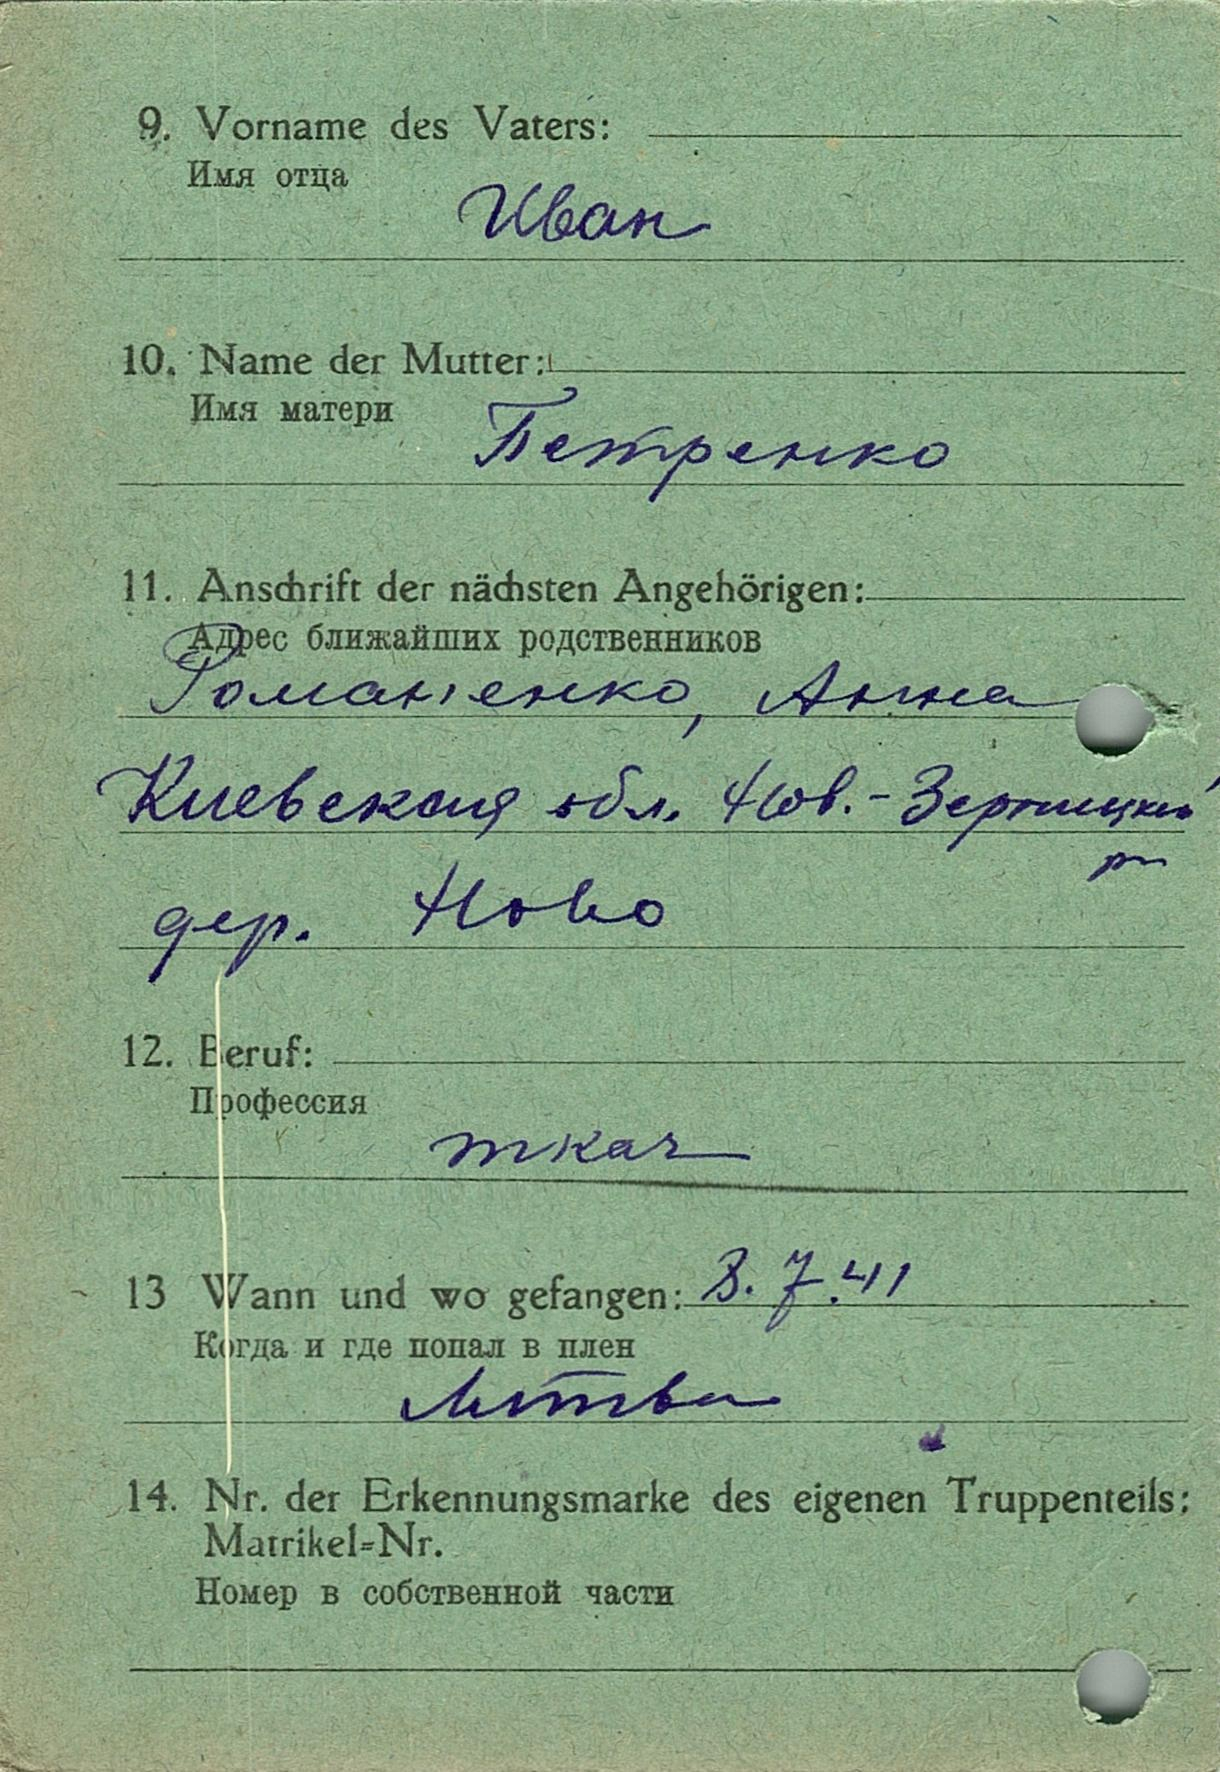 9. Vorname des Vaters:
Имя отца
Иван
10. Name der Mutter:
Имя матери
Петренко
11. Anschrift der nächsten Angehörigen:
Адрес ближайших родственников
Романенко, Анна
Киевская обл. Нов.-
дер. Ново
12. Beruf:
Профессия
ткач
13 Wann und wo gefangen: 8.7.41
Когда и где попал в плен
Литва
14. Nr. der Erkennungsmarke des eigenen Truppenteils:
Matrikel=Nr.
Номер в собственной части